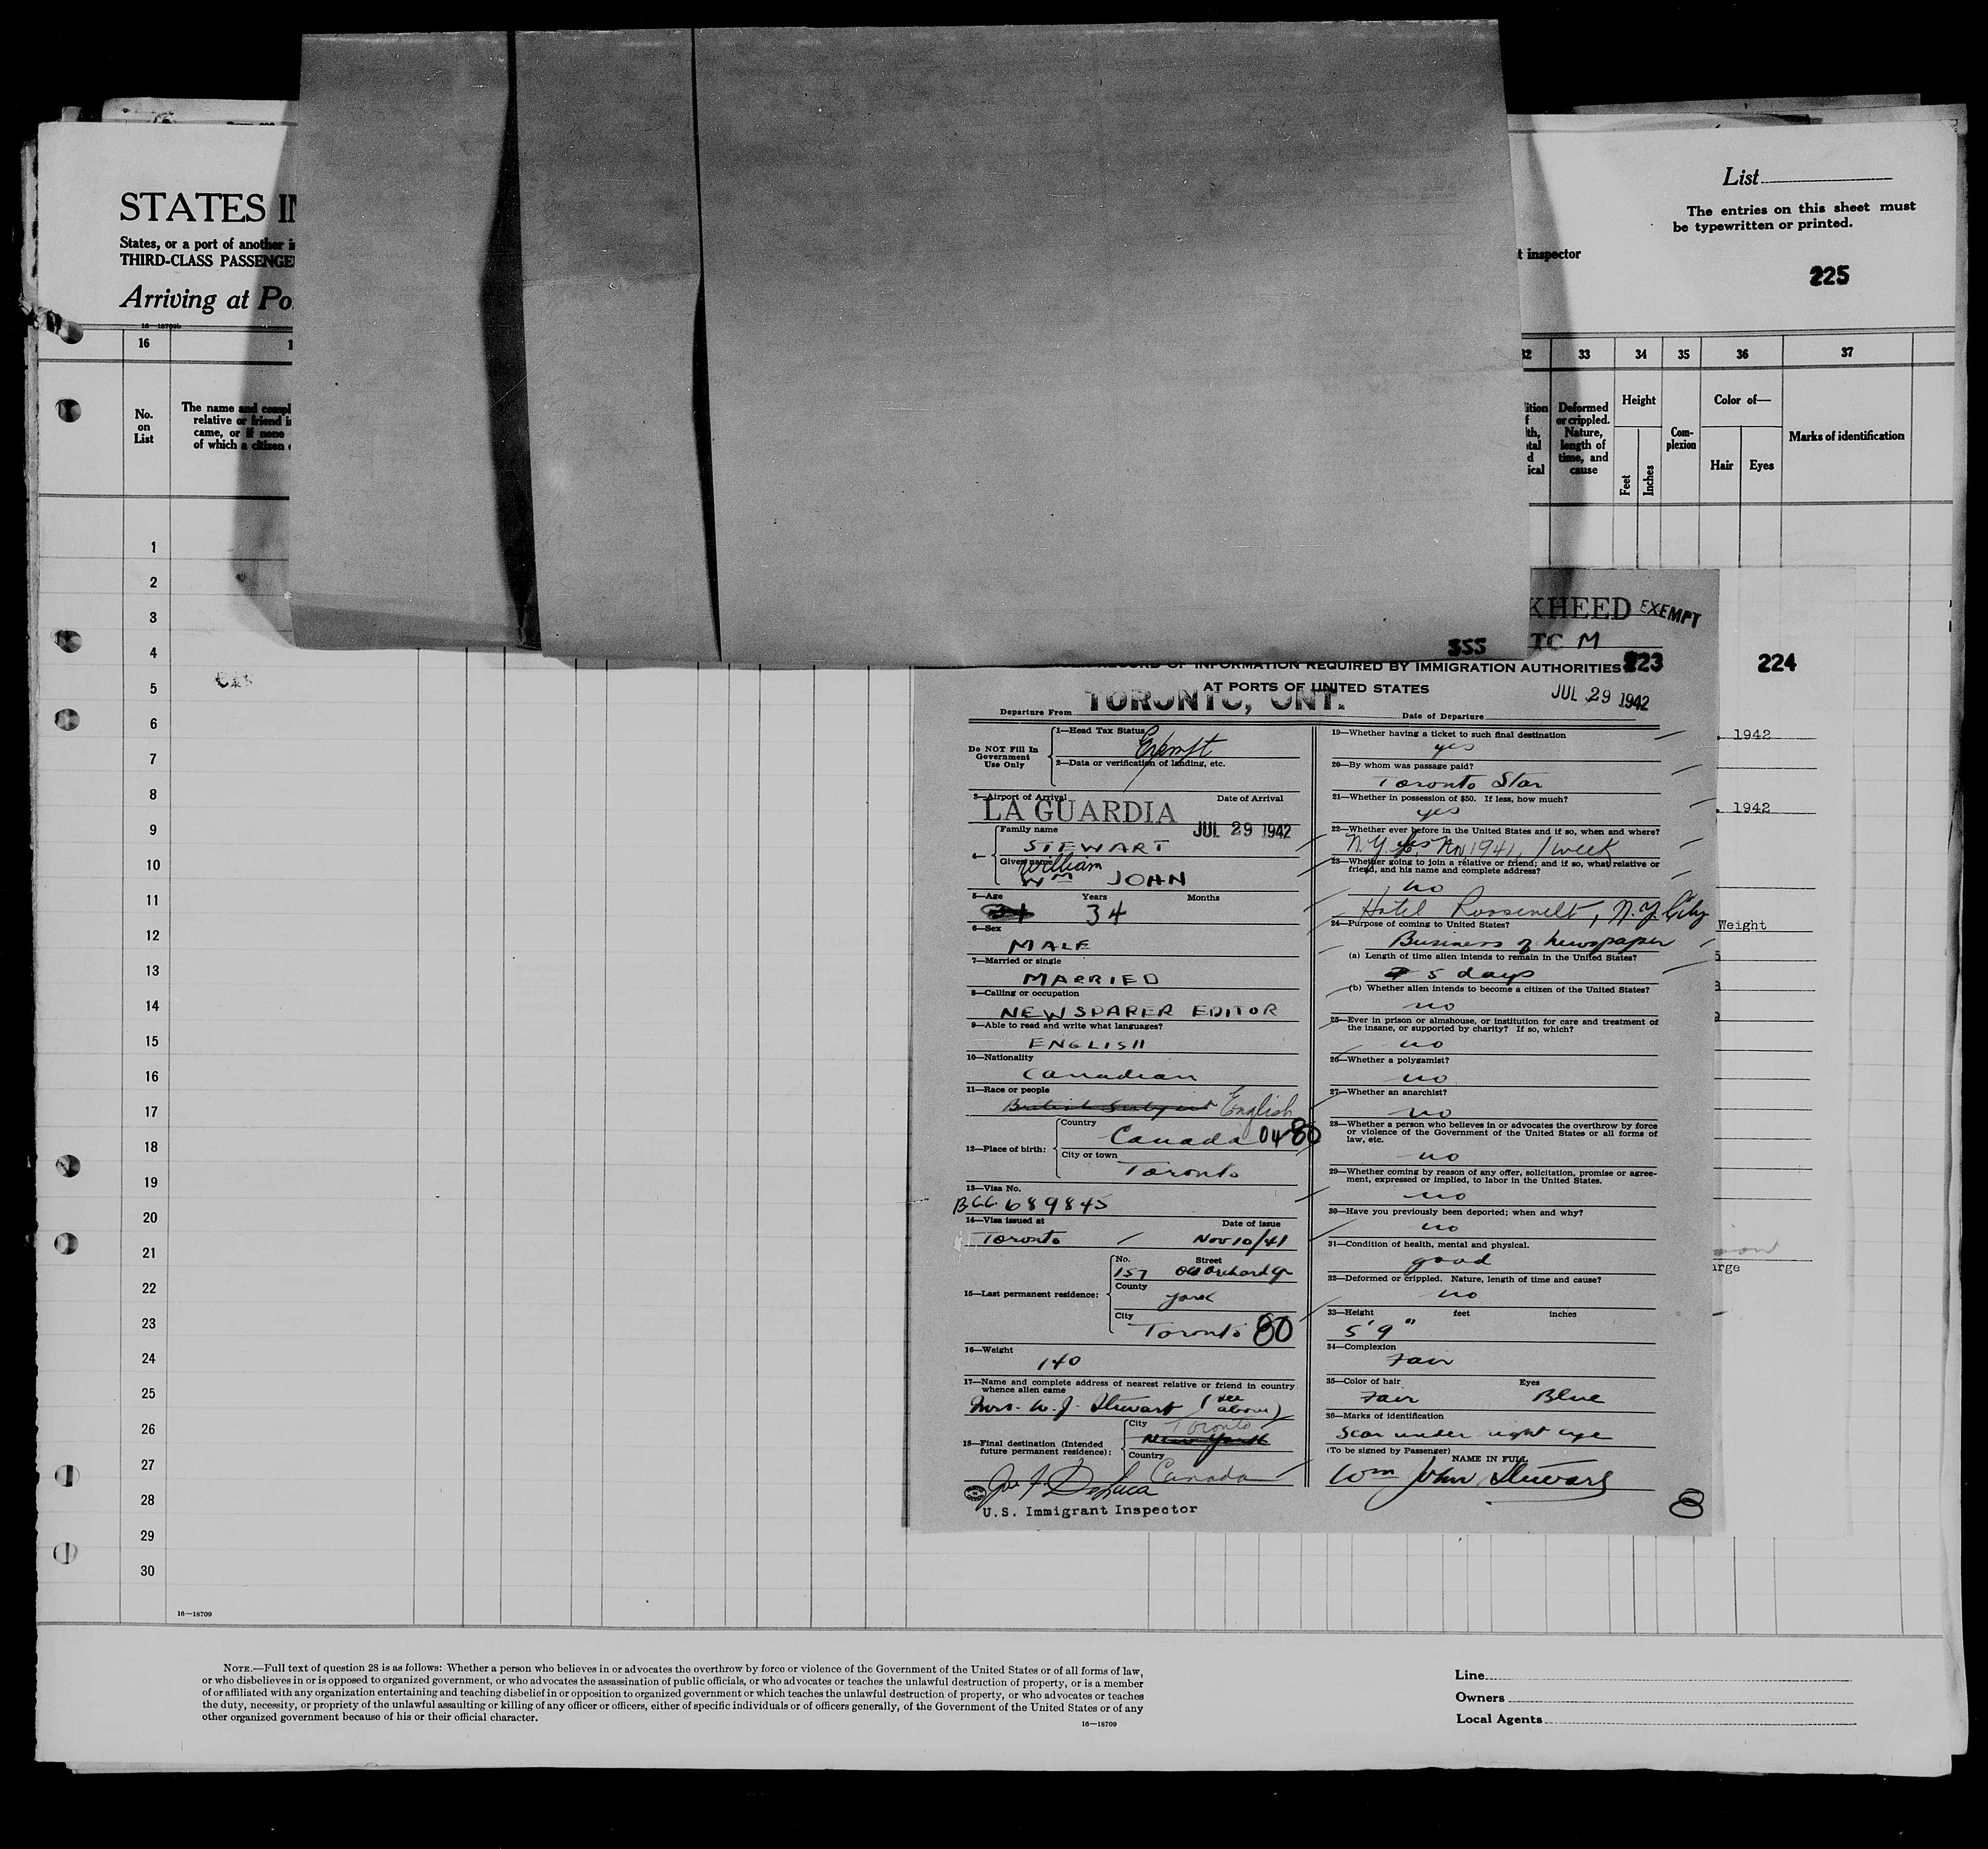 STATES IN
States, or a port of another i
THIRD-CLASS PASSENGE
Arriving at Po
16—18709b
List
The entries on this sheet must
be typewritten or printed.
t inspector
225
16
32 33 34 35 36 37
No.
on
List
The name and compl
relative or friend i
came, or if none
of which a citizen
Deformed
or crippled.
Nature,
length of
time, and
cause
Height
Feet
Inches
Com-
plexion
Color of—
Hair Eyes
Marks of identification
1
2
3
4
5
6
7
8
9
10
11
12
13
14
15
16
17
18
19
20
21
22
23
24
25
26
27
28
29
30
16—18709
KHEED EXEMPT
TC M
355
RECORD OF INFORMATION REQUIRED BY IMMIGRATION AUTHORITIES 223
AT PORTS OF UNITED STATES
224
Departure From TORONTO, ONT.
Date of Departure JUL 29 1942
Do NOT Fill In
Government
Use Only
1—Head Tax Status
Exempt
2—Data or verification of landing, etc.
3—Airport of Arrival
Date of Arrival
LA GUARDIA
JUL 29 1942
4—
Family name
STEWART
Given name
William
Wm JOHN
5—Age Years Months
34
6—Sex
MALE
7—Married or single
MARRIED
8—Calling or occupation
NEWSPAPER EDITOR
9—Able to read and write what languages?
ENGLISH
10—Nationality
Canadian
11—Race or people
British Subject English
12—Place of birth:
Country
Canada 04-80
City or town
Toronto
13—Visa No.
BCC 689845
14—Visa issued at Date of issue
Toronto Nov 10/41
15—Last permanent residence:
No. Street
157 Old Orchard Gr
County
York
City
Toronto 80
16—Weight
140
17—Name and complete address of nearest relative or friend in country
whence alien came
Mrs. W. J. Stewart (see
above)
18—Final destination (Intended
future permanent residence):
City
Toronto
New York
Country
Canada
U.S. Immigrant Inspector
19—Whether having a ticket to such final destination
yes
20—By whom was passage paid?
Toronto Star
21—Whether in possession of $50. If less, how much?
yes
22—Whether ever before in the United States and if so, when and where?
N.Y. yes Nov 1941, 1 week
23—Whether going to join a relative or friend; and if so, what relative or
friend, and his name and complete address?
no
Hotel Roosevelt, N.Y. City
24—Purpose of coming to United States?
Business of newspaper
(a) Length of time alien intends to remain in the United States?
5 days
(b) Whether alien intends to become a citizen of the United States?
no
25—Ever in prison or almshouse, or institution for care and treatment of
the insane, or supported by charity? If so, which?
no
26—Whether a polygamist?
no
27—Whether an anarchist?
no
28—Whether a person who believes in or advocates the overthrow by force
or violence of the Government of the United States or all forms of
law, etc.
no
29—Whether coming by reason of any offer, solicitation, promise or agree-
ment, expressed or implied, to labor in the United States.
no
30—Have you previously been deported; when and why?
no
31—Condition of health, mental and physical.
good
32—Deformed or crippled. Nature, length of time and cause?
no
33—Height feet inches
5'9"
34—Complexion
Fair
35—Color of hair Eyes
Fair Blue
36—Marks of identification
Scar under right eye
(To be signed by Passenger)
NAME IN FULL
Wm John Stewart
80
1942
1942
Weight
NOTE.—Full text of question 28 is as follows: Whether a person who believes in or advocates the overthrow by force or violence of the Government of the United States or of all forms of law,
or who disbelieves in or is opposed to organized government, or who advocates the assassination of public officials, or who advocates or teaches the unlawful destruction of property, or is a member
of or affiliated with any organization entertaining and teaching disbelief in or opposition to organized government or which teaches the unlawful destruction of property, or who advocates or teaches
the duty, necessity, or propriety of the unlawful assaulting or killing of any officer or officers, either of specific individuals or of officers generally, of the Government of the United States or of any
other organized government because of his or their official character.
16—18709
Line
Owners
Local Agents